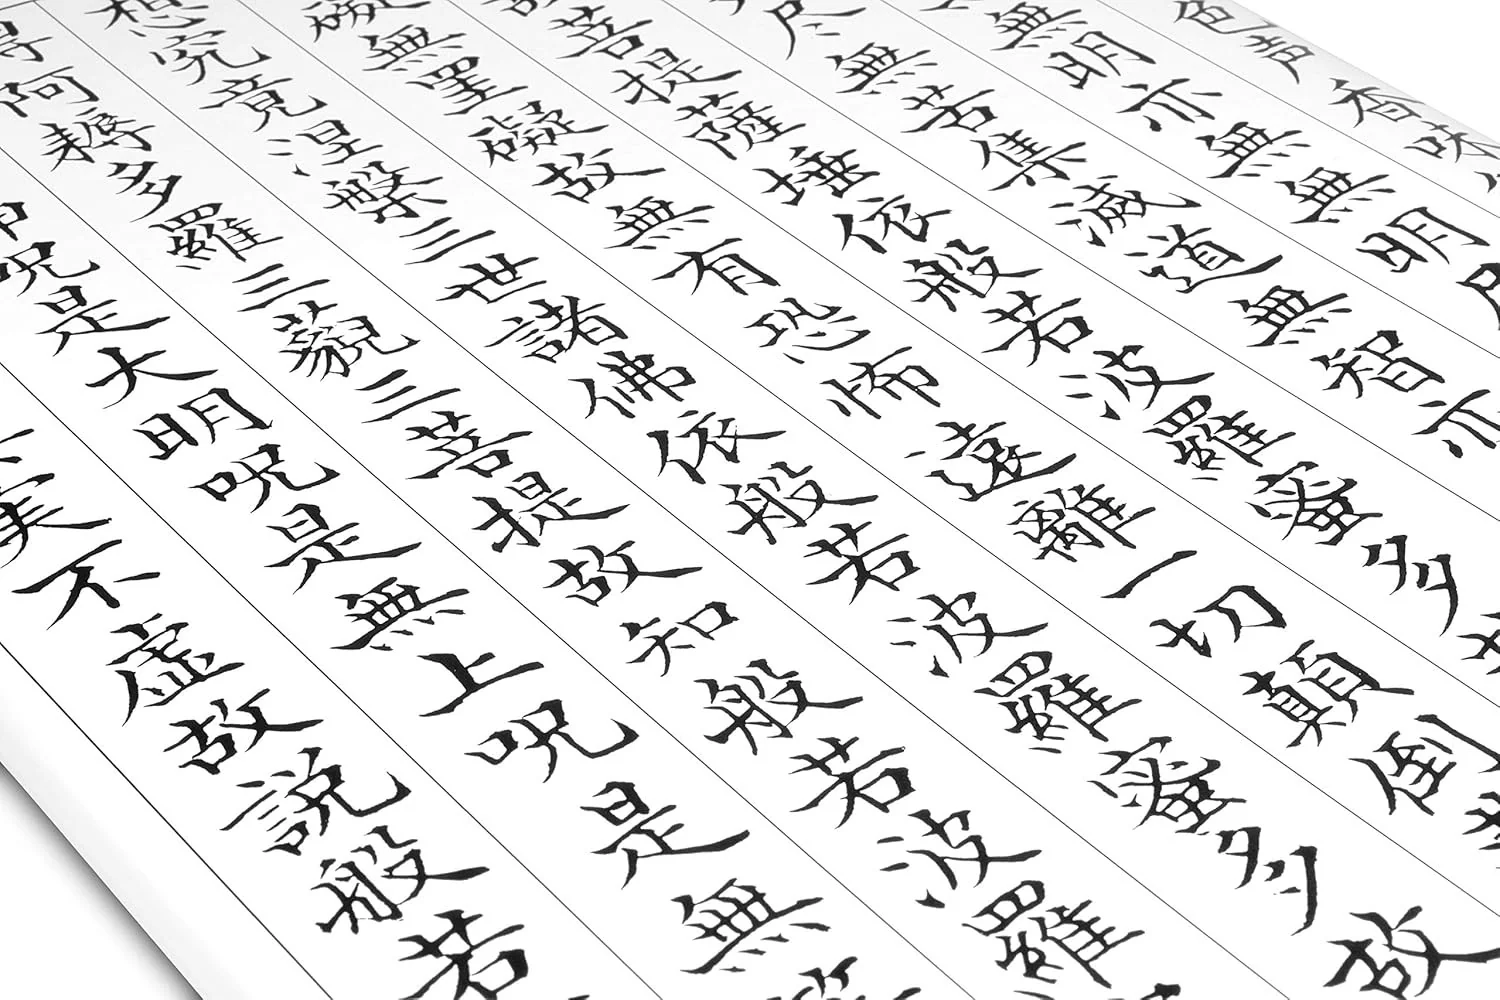 色声香味
無明亦無無明
尽無苦集滅道無智亦
菩提薩埵依般若波羅蜜多
礙無罣礙故無有恐怖遠離一切顛倒
想究竟涅槃三世諸佛依般若波羅蜜多故
得阿耨多羅三藐三菩提故知般若波羅
呪是大明呪是無上呪是無
実不虚故説般若